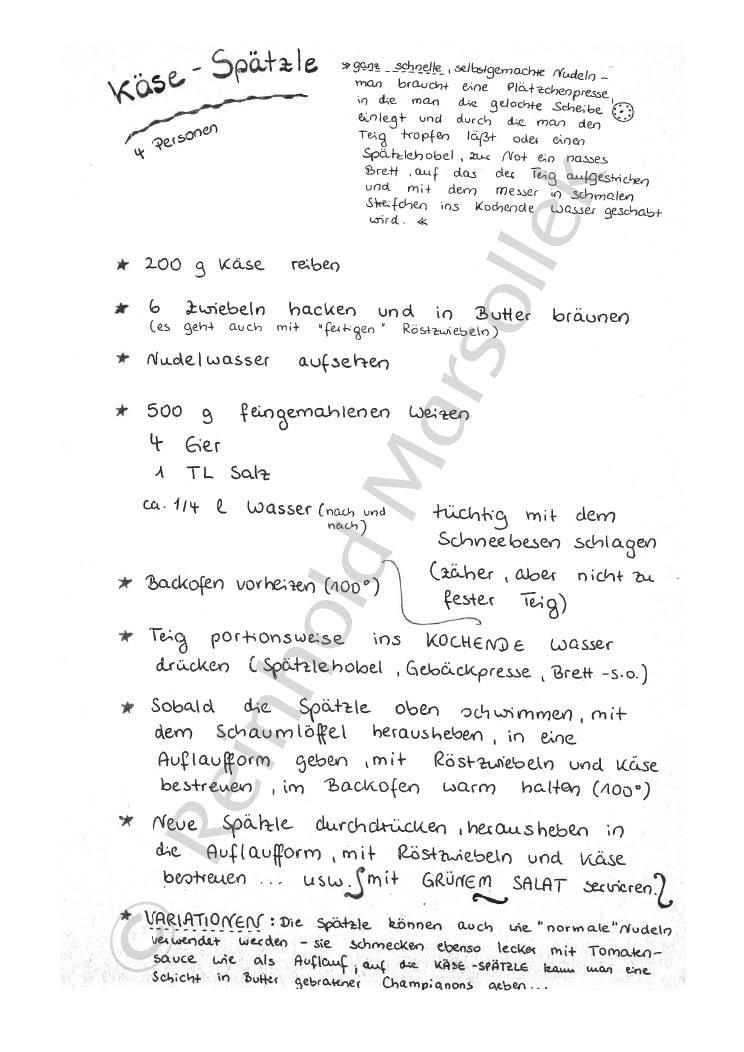 Käse - Spätzle
4 Personen
» ganz schnelle, selbstgemachte Nudeln -
man braucht eine Plätzchenpresse,
in die man die gelochte Scheibe
einlegt und durch die man den
Teig tropfen läßt oder einen
Spätzlehobel, zur Not ein nasses
Brett, auf das der Teig aufgestrichen
und mit dem Messer in schmalen
Streifchen ins Kochende Wasser geschabt
wird. «
* 200 g Käse reiben
* 6 Zwiebeln hacken und in Butter bräunen
(es geht auch mit "fertigen" Röstzwiebeln)
* Nudelwasser aufsetzen
* 500 g feingemahlenen Weizen
4 Eier
1 TL Salz
ca. 1/4 l Wasser (nach und
nach)
tüchtig mit dem
Schneebesen schlagen
(zäher, aber nicht zu
fester Teig)
* Backofen vorheizen (100°)
* Teig portionsweise ins KOCHENDE Wasser
drücken (Spätzlehobel, Gebäckpresse, Brett -s.o.)
* Sobald die Spätzle oben schwimmen, mit
dem Schaumlöffel herausheben, in eine
Auflaufform geben, mit Röstzwiebeln und Käse
bestreuen, im Backofen warm halten (100°)
* Neue Spätzle durchdrücken, herausheben in
die Auflaufform, mit Röstzwiebeln und Käse
bestreuen ... usw. mit GRÜNEM SALAT servieren.
* VARIATIONEN: Die Spätzle können auch wie "normale" Nudeln
verwendet werden - sie schmecken ebenso lecker mit Tomaten-
sauce wie als Auflauf, auf die KÄSE-SPÄTZLE kann man eine
Schicht in Butter gebratener Champignons geben...
© Reinhold Marsollek